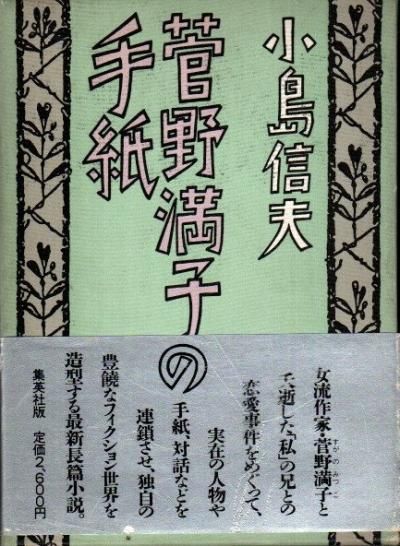 小島信夫
菅野満子の
手紙
女流作家・菅野満子と
すがのみつこ
逝した「私」の兄との
恋愛事件をめぐって、
実在の人物や
手紙、対話などを
連鎖させ、独自の
豊饒なフィクション世界を
造型する最新長篇小説。
集英社版 定価2,600円